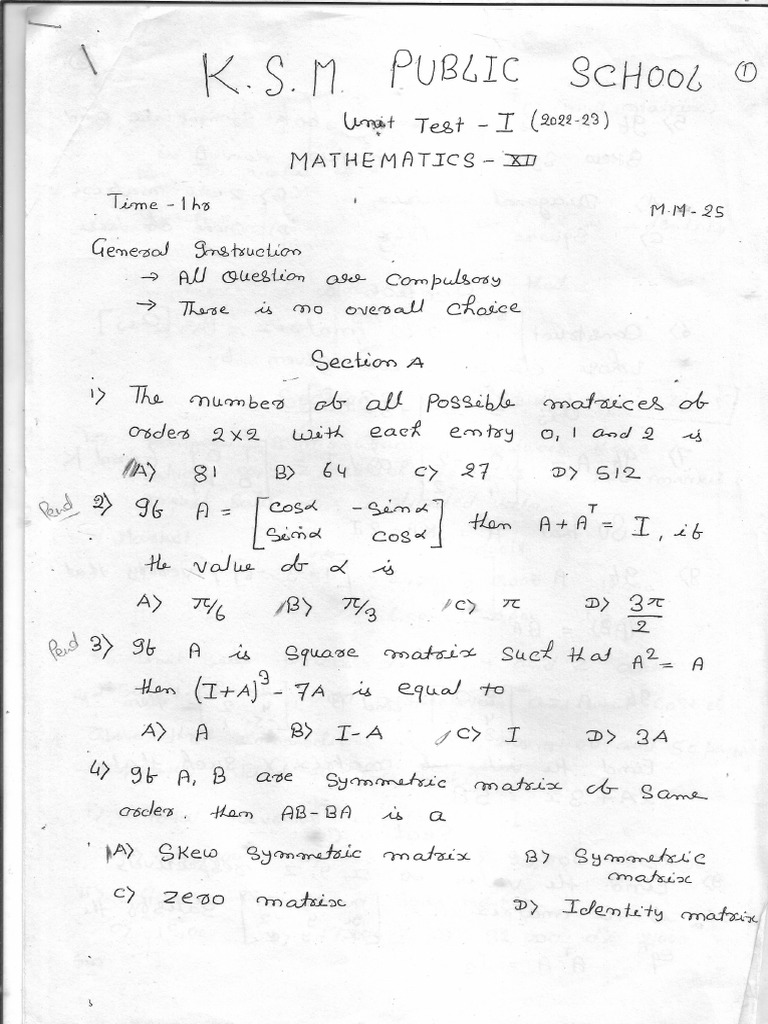 K.S.M. PUBLIC SCHOOL ①
Unit Test - I (2022-23)
MATHEMATICS - XII
Time - 1hr M.M-25
General Instruction
→ All Question are compulsory
→ There is no overall choice
Section A
1) The number of all possible matrices of
order 2×2 with each entry 0, 1 and 2 is
A) 81 B) 64 C) 27 D) 512
2) If A = [cosα -sinα
sinα cosα] then A + Aᵀ = I, if
the value of α is
A) π/6 B) π/3 C) π D) 3π/2
3) If A is square matrix such that A² = A
then (I+A)³ - 7A is equal to
A) A B) I-A C) I D) 3A
4) If A, B are symmetric matrix of same
order. then AB-BA is a
A) Skew symmetric matrix B) Symmetric
matrix
C) zero matrix D) Identity matrix